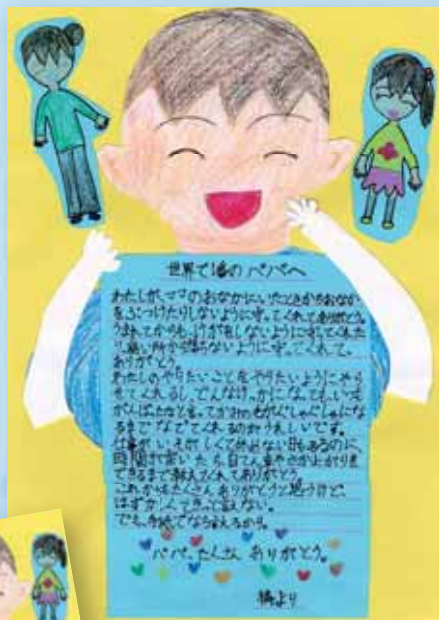 世界で1番の パパへ
わたしが、ママのおなかにいたときからおなか
をぶつけたりしないように守ってくれてありがとう。
うまれてからも、けがをしないように守ってくれた
り、高い所から落ちないように守ってくれて、
ありがとう。
わたしのやりたいことをやりたいようにやら
せてくれるし、どんなけっかになっても、いつも
がんばったなと言ってかみの毛がぐしゃぐしゃにな
るまでなでてくれるのがうれしいです。
仕事がいそがしくて休めない日もあるのに、
たら、自てん車やさか上がりを
できるまで教えてくれてありがとう。
これからもたくさんありがとうと思うけど、
はずかしくてきっと言えない。
でも、手紙でなら言えるから。
パパ、たくさん ありがとう。
より